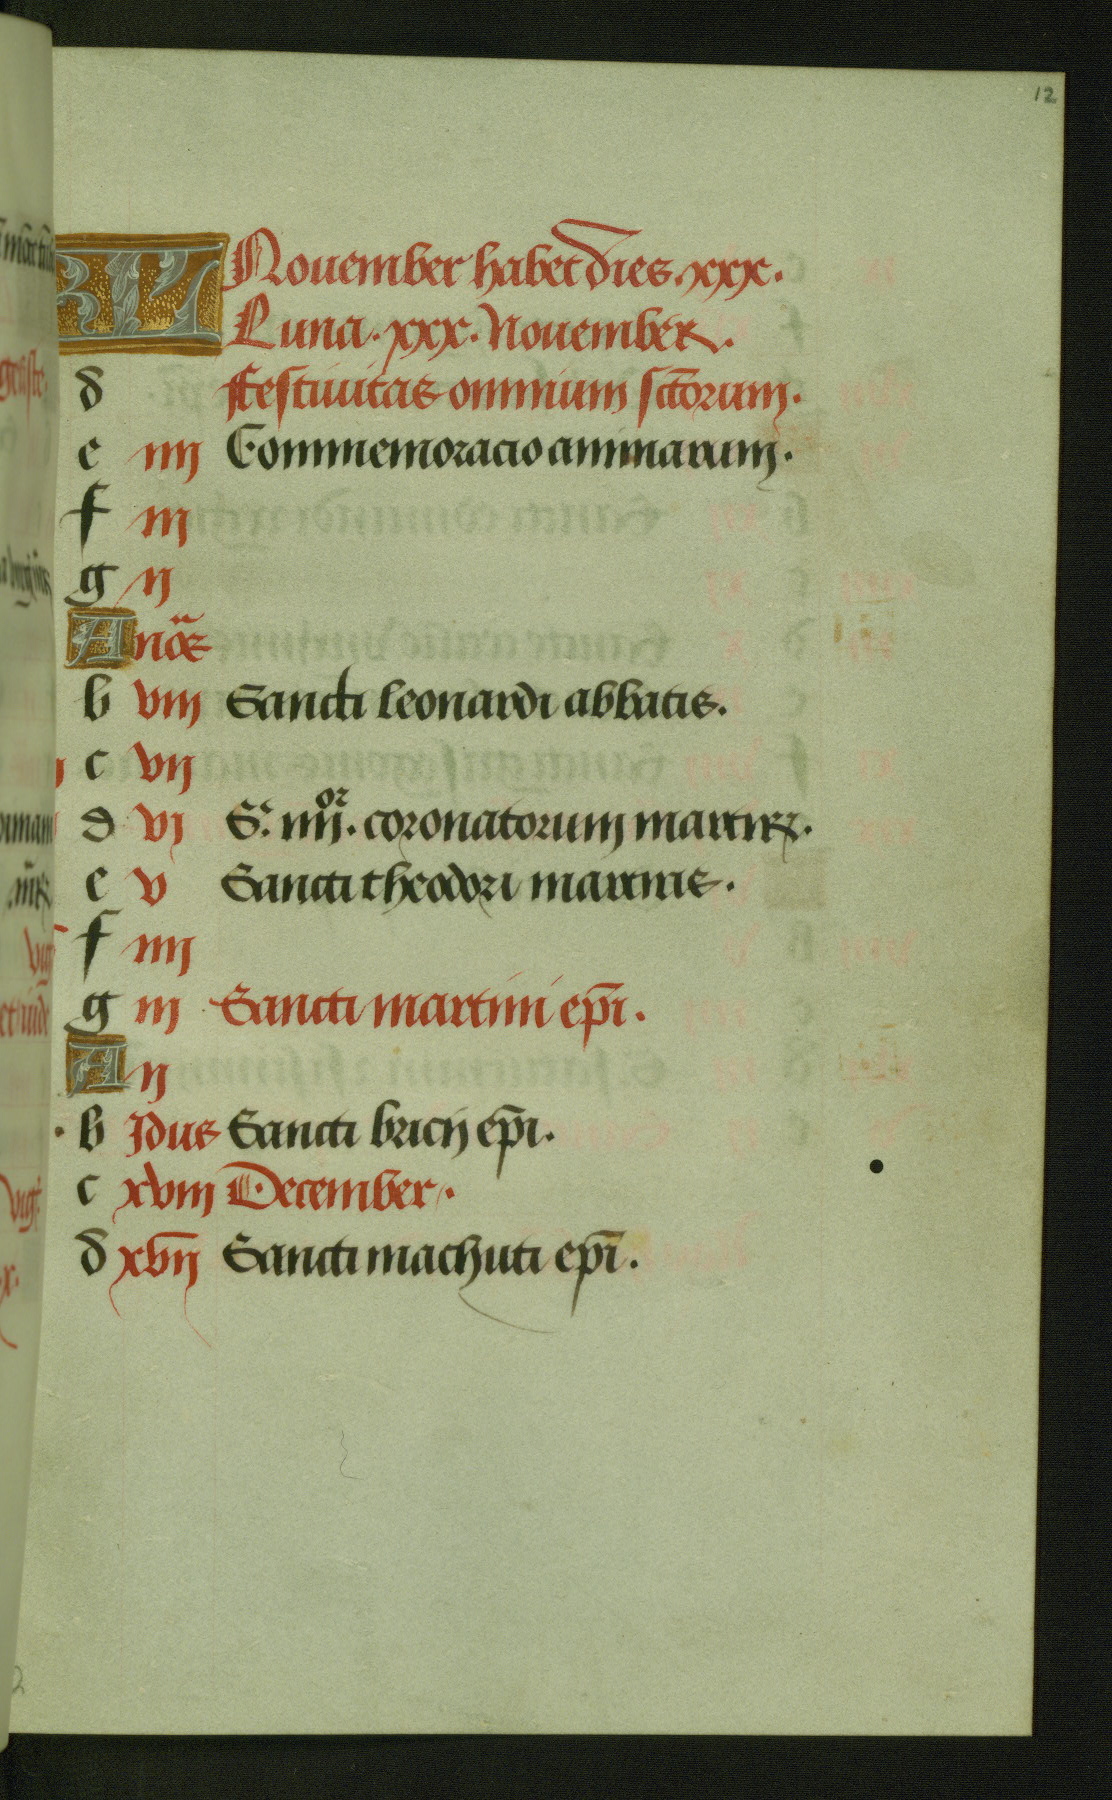 12
KL Nouember habet dies. xxx.
Luna. xxx. Nouember.
d Festiuitas omnium sc̃torum.
e iiij Commemoracio animarum.
f iij
g ij
A noñ
b viij Sancti leonardi abbatis.
c vij
d vj S. iiijor. coronatorum martirꝝ.
e v Sancti theodori martiris.
f iiij
g iij Sancti martini ep̃i.
A ij
b Jdus Sancti bricij ep̃i.
c xviij December.
d xvij Sancti machuti ep̃i.